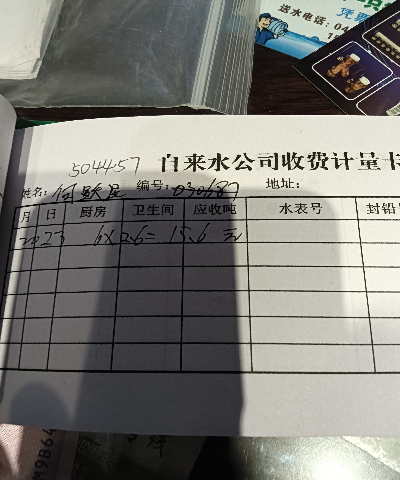 送水电话:04
504457 自来水公司收费计量卡
姓名: 编号:030687 地址:
月 日 厨房 卫生间 应收吨 水表号 封铅
2023 6×2.6= 15.6 元